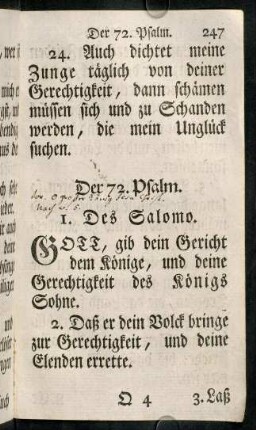 Der 72. Psalm. 247
24. Auch dichtet meine
Zunge täglich von deiner
Gerechtigkeit, dann schämen
müssen sich und zu Schanden
werden, die mein Unglück
suchen.
Der 72. Psalm.
1. Des Salomo.
GOTT, gib dein Gericht
dem Könige, und deine
Gerechtigkeit des Königs
Sohne.
2. Daß er dein Volck bringe
zur Gerechtigkeit, und deine
Elenden errette.
Q 4 3. Laß